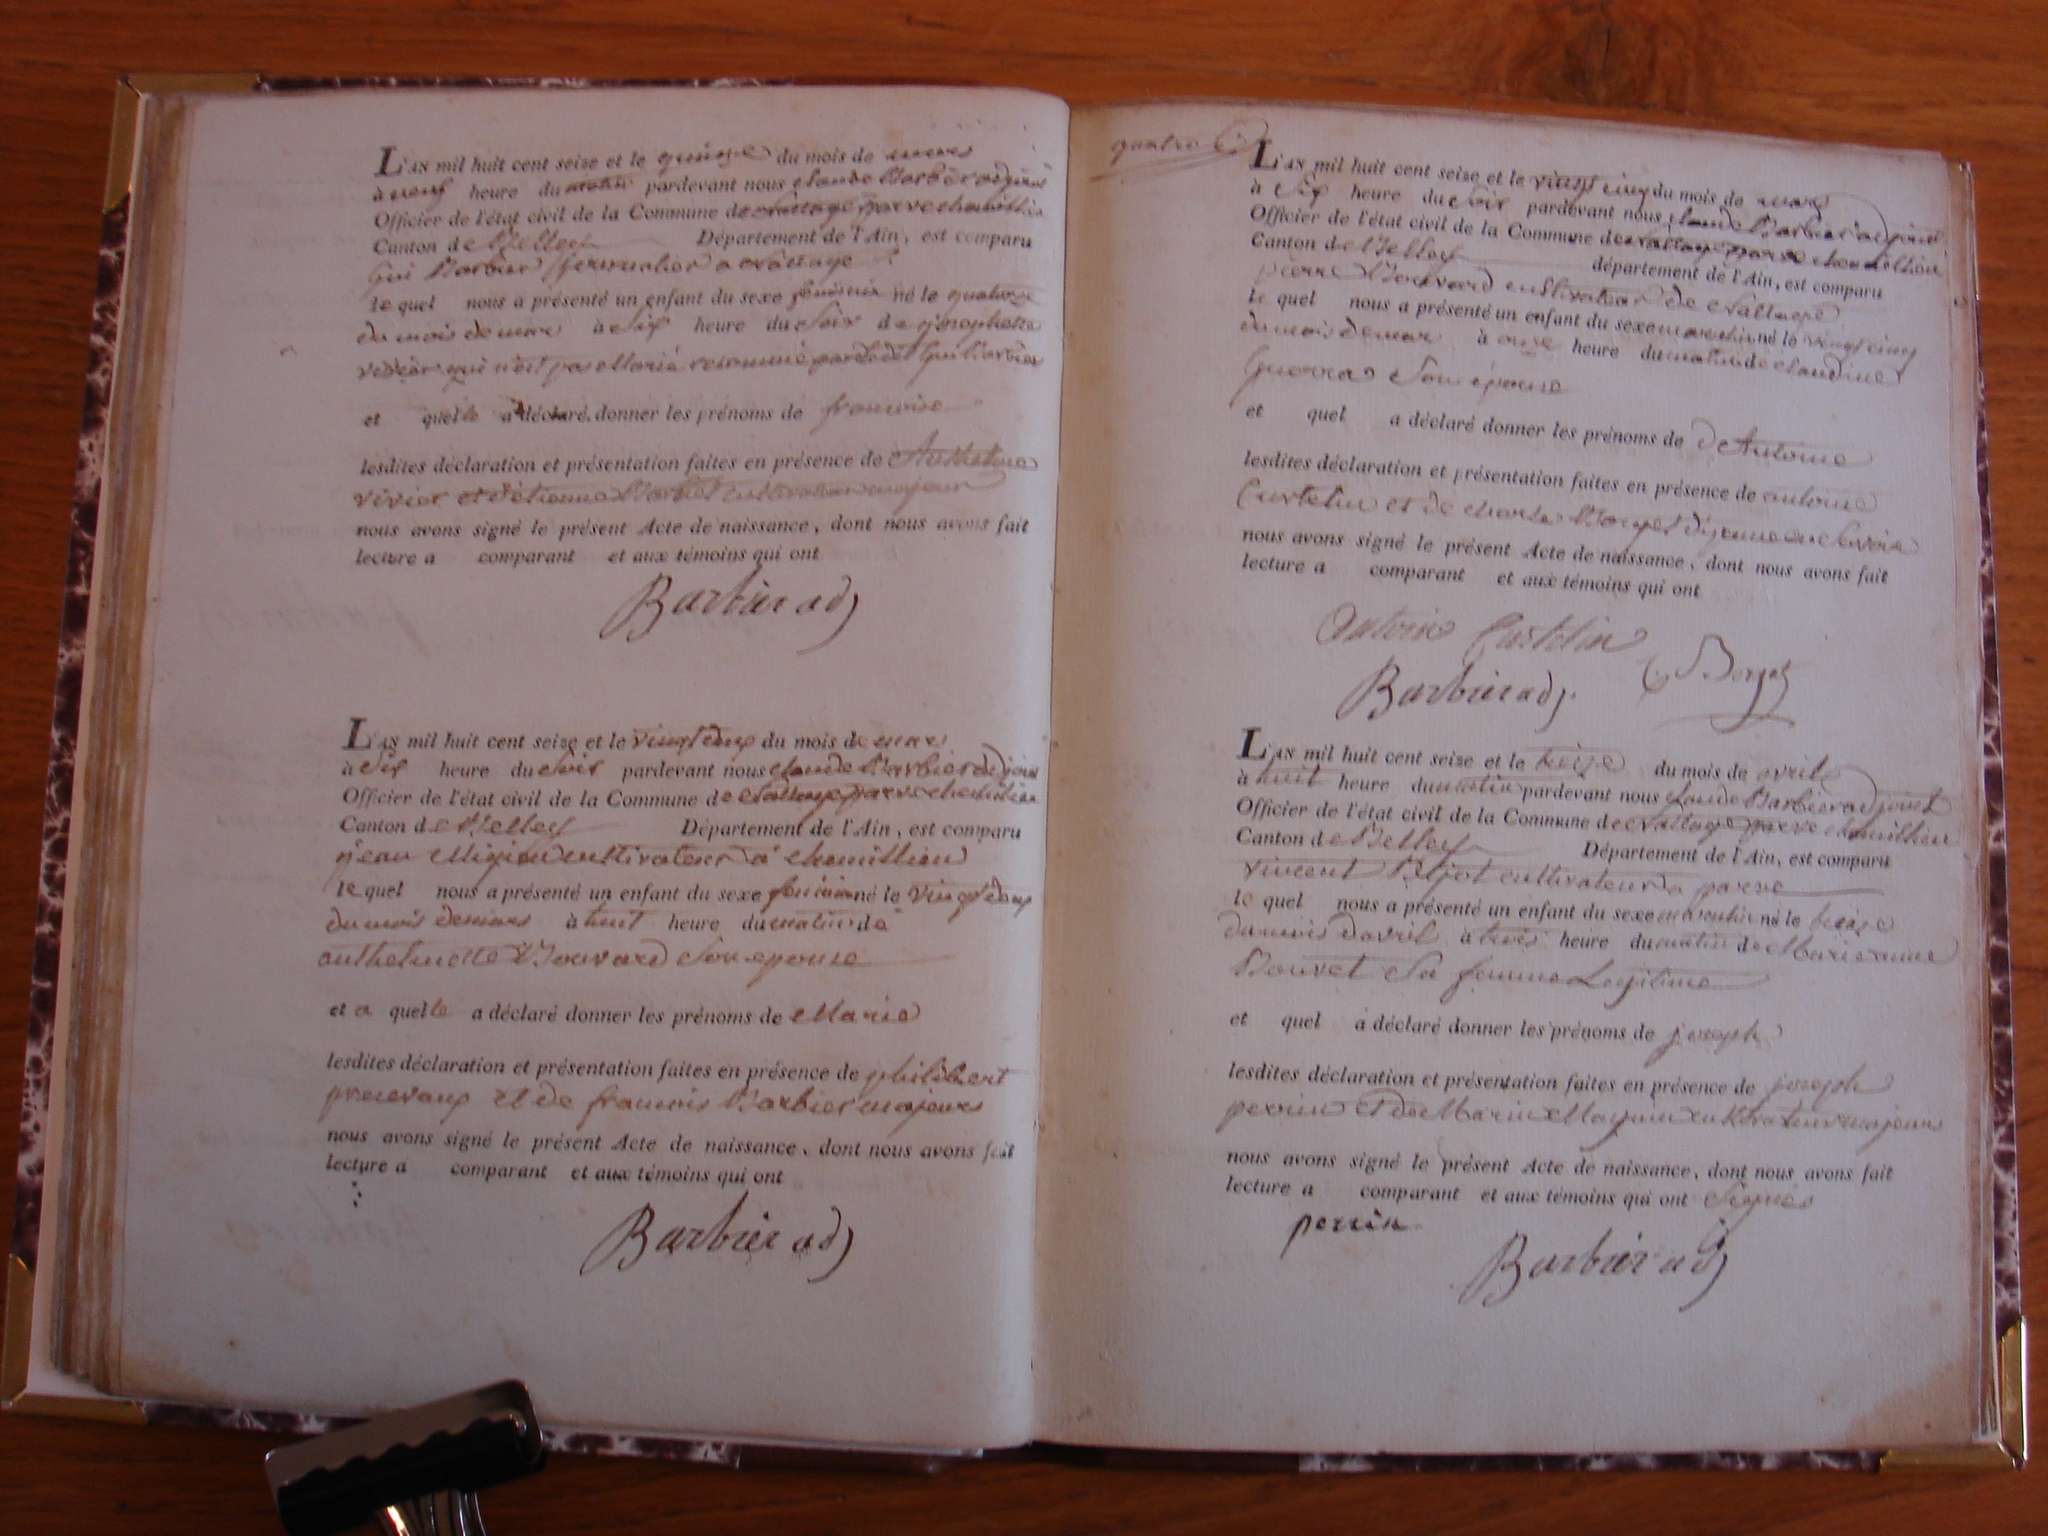 L'AN mil huit cent seize et le quinze du mois de mars
à neuf heure du matin pardevant nous claude Barbier adjoint
Officier de l'état civil de la Commune de Crallage parve chemillieu
Canton de Belley Département de l'Ain, est comparu
Gui Barbier journalier a crallage
le quel nous a présenté un enfant du sexe feminin né le quatorze
du mois de mar à Six heure du Soir de
qui n'est pas Marié par ledit Gui Barbier
et quelle a déclaré donner les prénoms de francoise
lesdites déclaration et présentation faites en présence de Anthelme
vivier et d'étienne Barbier cultivateur majeur
nous avons signé le présent Acte de naissance, dont nous avons fait
lecture a comparant et aux témoins qui ont
Barbier adj
L'AN mil huit cent seize et le vingt deux du mois de mars
à Six heure du Soir pardevant nous claude Barbier adjoint
Officier de l'état civil de la Commune de Crallage parve chemillieu
Canton de Belley Département de l'Ain, est comparu
jean cultivateur a chemillieu
le quel nous a présenté un enfant du sexe feminin né le vingt deux
du mois de mars à huit heure du matin de
anthelmette Bouvard Son epouse
et a quelle a déclaré donner les prénoms de Marie
lesdites déclaration et présentation faites en présence de philibert
et de francois Barbier majeurs
nous avons signé le présent Acte de naissance, dont nous avons fait
lecture a comparant et aux témoins qui ont
Barbier adj
quatre
L'AN mil huit cent seize et le vingt cinq du mois de mars
à Six heure du Soir pardevant nous claude Barbier adjoint
Officier de l'état civil de la Commune de Crallage parve chemillieu
Canton de Belley département de l'Ain, est comparu
pierre Bouvard cultivateur de Crallage
le quel nous a présenté un enfant du sexe masculin né le vingt cinq
du mois de mar à onze heure du matin de claudine
Guerra Son épouse
et quel a déclaré donner les prénoms de d'Antoine
lesdites déclaration et présentation faites en présence de antoine
Castelin et de charle Borget d'yenne en Savoie
nous avons signé le présent Acte de naissance, dont nous avons fait
lecture a comparant et aux témoins qui ont
Antoine Castelin
Borget
Barbier adj.
L'AN mil huit cent seize et le treize du mois de avril
à huit heure du matin pardevant nous claude Barbier adjoint
Officier de l'état civil de la Commune de Crallage parve chemillieu
Canton de Belley Département de l'Ain, est comparu
vincent Bijot cultivateur a parve
le quel nous a présenté un enfant du sexe masculin né le treize
du mois d'avril à trois heure du matin de Marie anne
Bouvet Sa femme Legitime
et quel a déclaré donner les prénoms de joseph
lesdites déclaration et présentation faites en présence de joseph
perrin et de Marin cultivateur majeurs
nous avons signé le présent Acte de naissance, dont nous avons fait
lecture a comparant et aux témoins qui ont Signés
perrin
Barbier adj